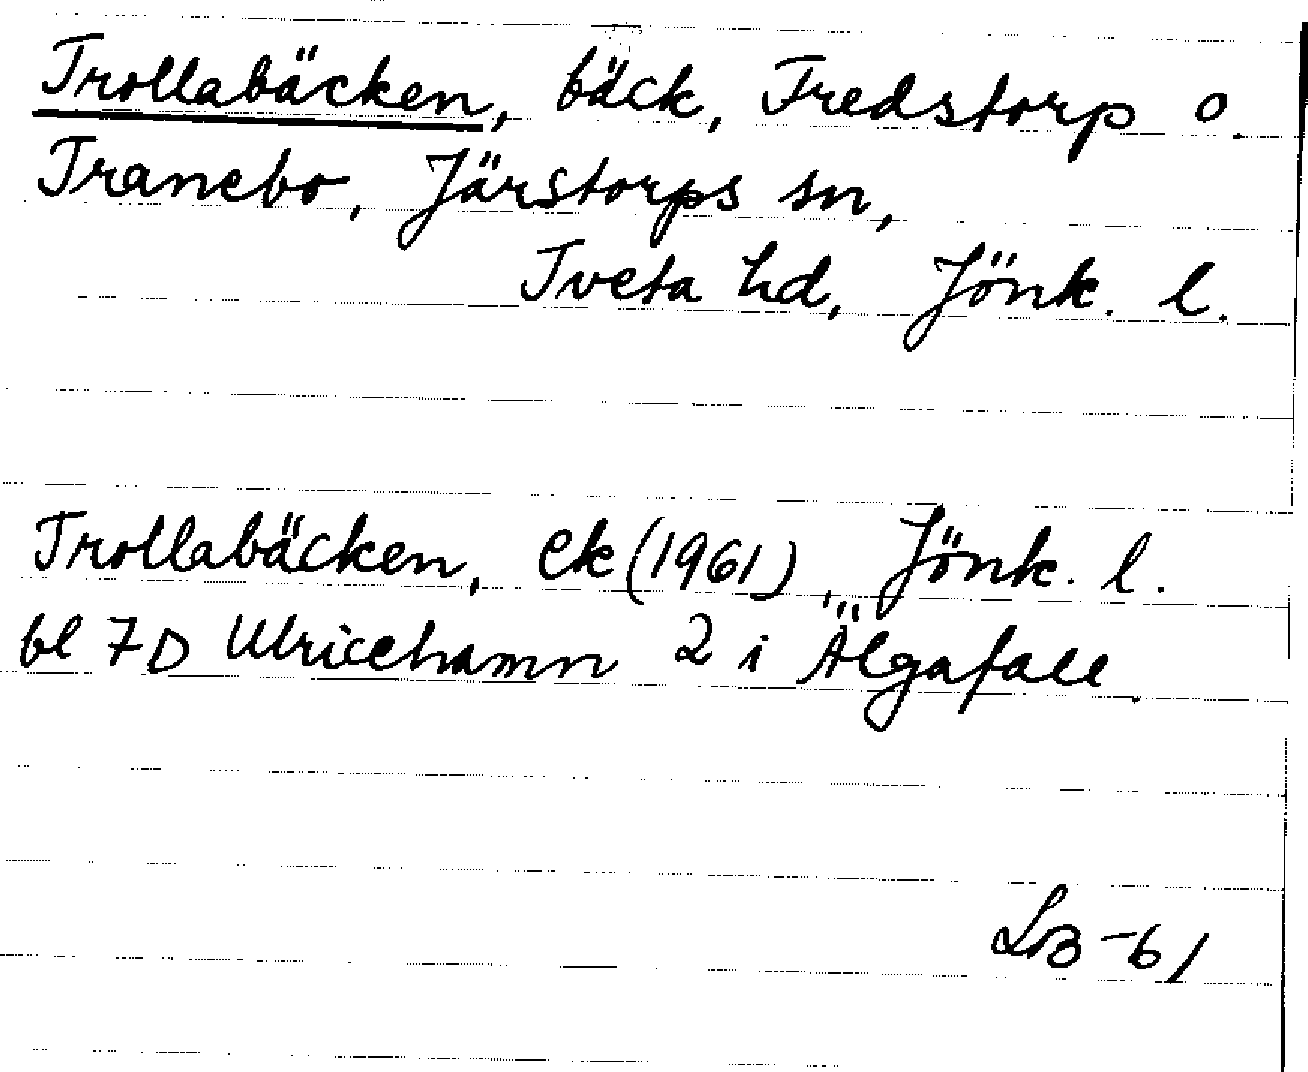 Trollabäcken, bäck, Fredstorp o.
Tranebo, Järstorps sn,
Tveta hd, Jönk. l.
Trollabäcken, ek (1961), Jönk. l.
bl 7D Ulricehamn 2 i Älgafall.
LB -61